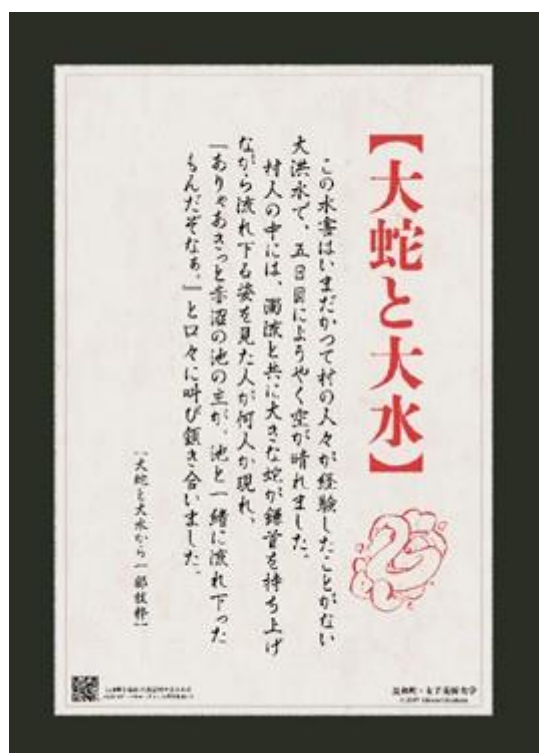 【大蛇と大水】
この水害はいまだかつて村の人々が経験したことがない
大洪水で、五日目にようやく空が晴れました。
村人の中には、濁流と共に大きな蛇が鎌首を持ち上げ
ながら流れ下る姿を見た人が何人か現れ、
「ありゃあきっと赤沼の池の主が、池と一緒に流れ下った
もんだぞなぁ。」と口々に叫び頷き合いました。
[大蛇と大水から一部抜粋]